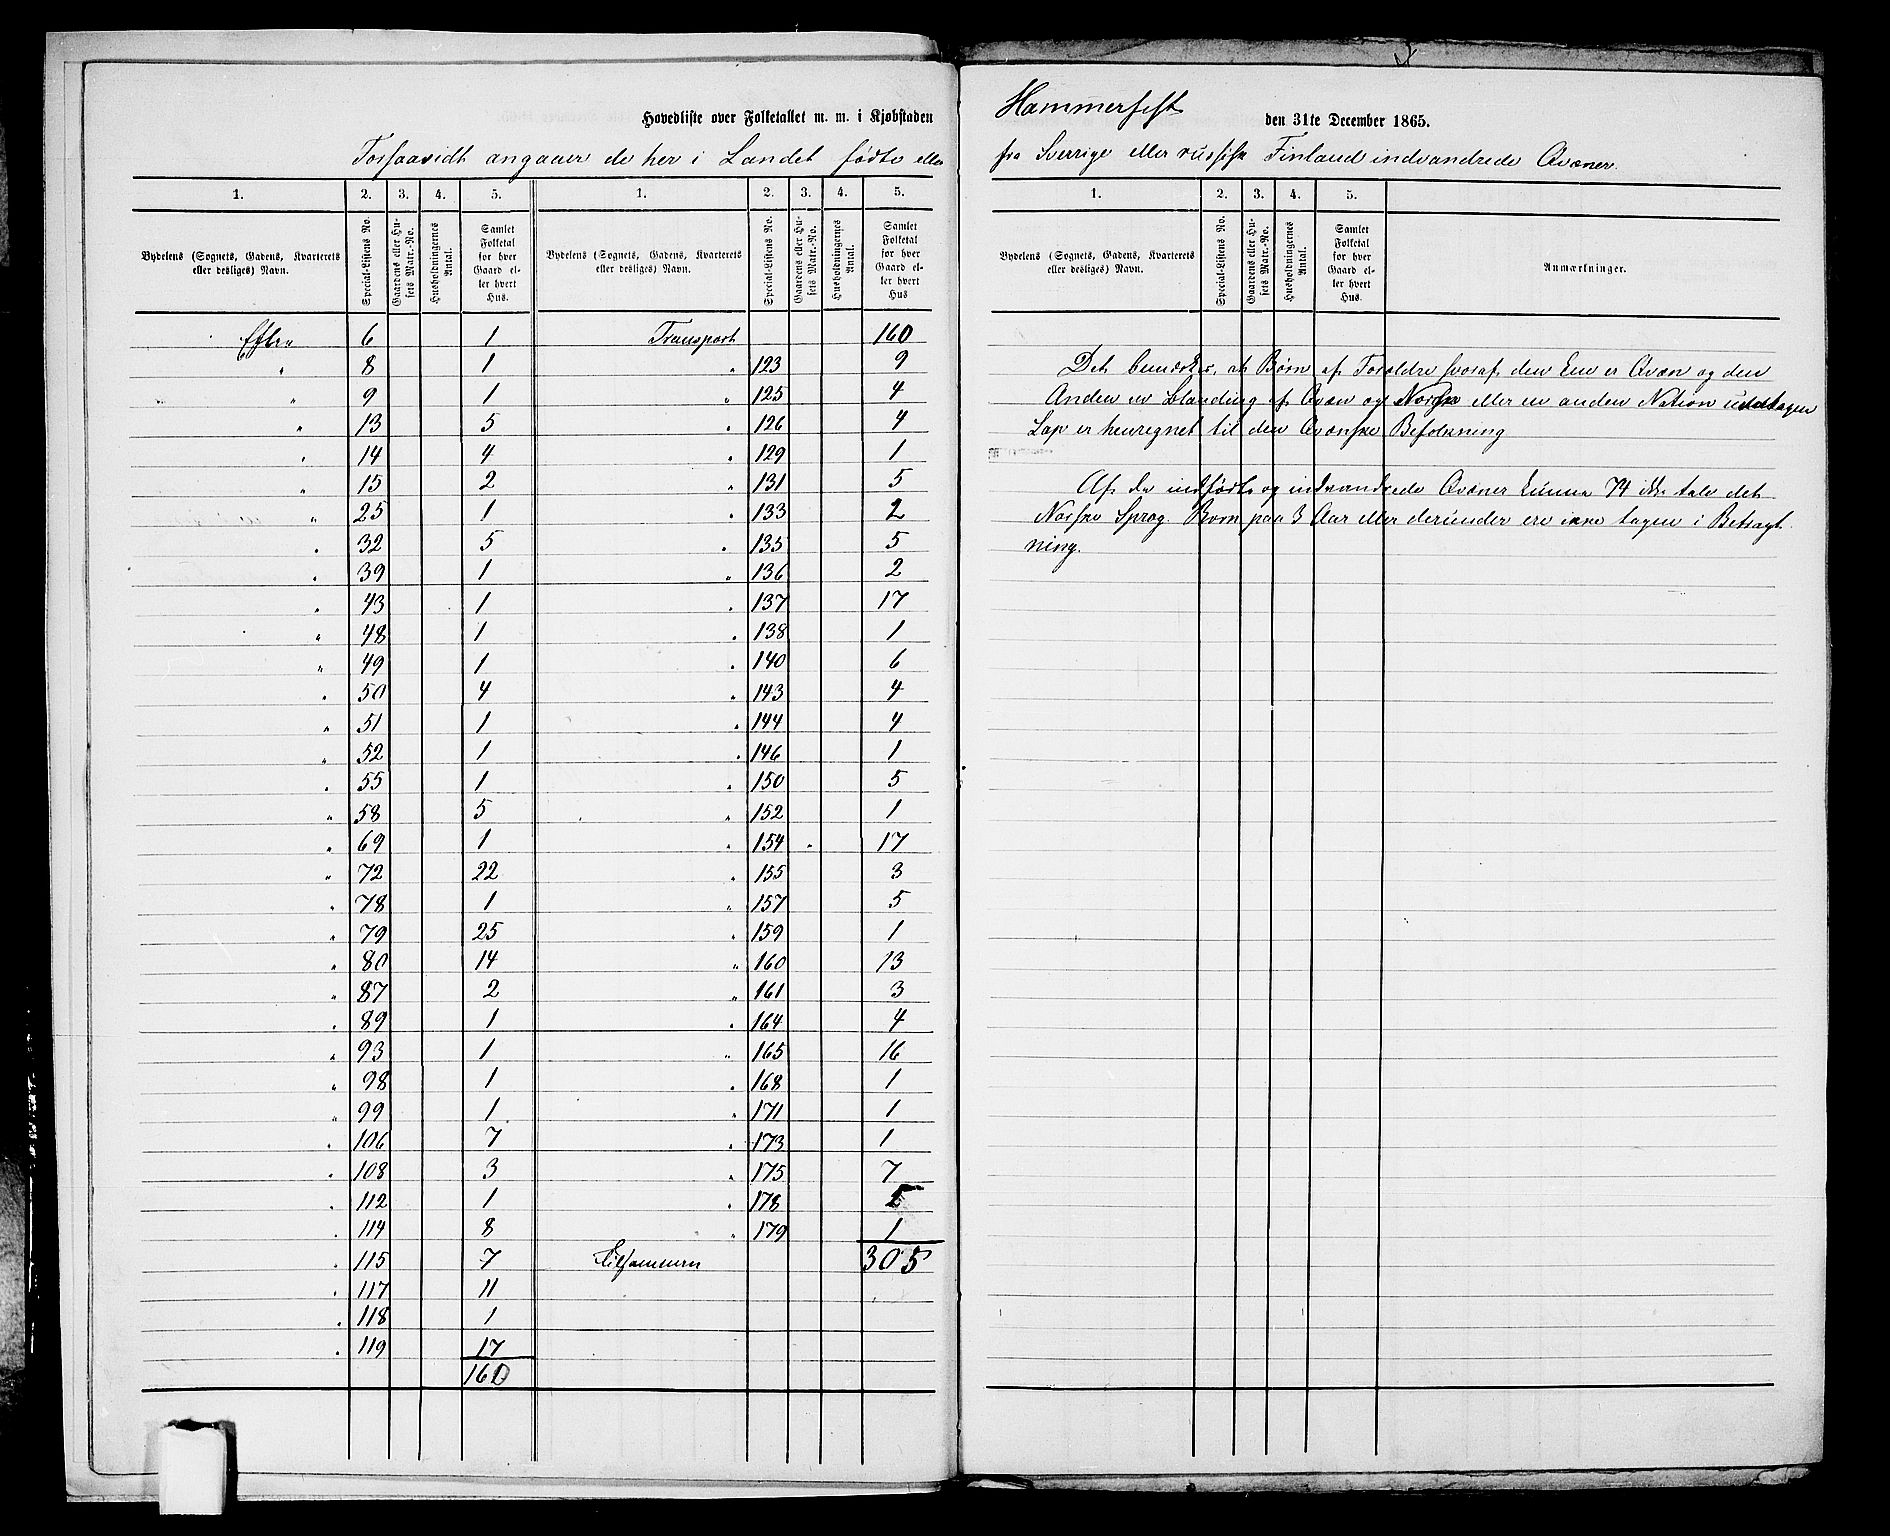 Hovedliste over Folketallet m. m. i Kjøbstaden Hammerfest den 31te December 1865.
Forsaavidt angaaer de her i Landet fødte eller fra Sverrige eller russisk Finland indvandrede Qvæner.
1. 2. 3. 4. 5. 1. 2. 3. 4. 5.
Bydelens (Sognets, Gadens, Kvarterets eller desliges) Navn. Special-Listens No. Gaardens eller Husets Matr.-No. Husholdningernes Antal. Samlet Folketal for hver Gaard eller hvert Hus. Bydelens (Sognets, Gadens, Kvarterets eller desliges) Navn. Special-Listens No. Gaardens eller Husets Matr.-No. Husholdningernes Antal. Samlet Folketal for hver Gaard eller hvert Hus
6 1 Transport 160
" 8 1 " 123 9
" 9 1 " 125 4
" 13 5 " 126 4
" 14 4 " 129 1
" 15 2 " 131 5
" 25 1 " 133 2
" 32 5 " 135 5
" 39 1 " 136 2
" 43 1 " 137 17
" 48 1 " 138 1
" 49 1 " 140 6
" 50 4 " 143 4
" 51 1 " 144 4
" 52 1 " 146 1
" 55 1 " 150 5
" 58 5 " 152 1
" 69 1 " 154 17
" 72 22 " 155 3
" 78 1 " 157 5
" 79 25 " 159 1
" 80 14 " 160 13
" 87 2 " 161 3
" 89 1 " 164 4
" 93 1 " 165 16
" 98 1 " 168 1
" 99 1 " 171 1
" 106 7 " 173 1
" 108 3 " 175 7
" 112 1 " 178
" 114 8 " 179 1
" 115 7 Tilsammen 305
" 117 11
" 118 1
" 119 17
160
1. 2. 3. 4. 5.
Bydelens (Sognets, Gadens, Kvarterets eller desliges) Navn. Special-Listens No. Gaardens eller Husets Matr.-No. Husholdningernes Antal. Samlet Folketal for hver Gaard eller hvert Hus Anmærkninger.
Det bemærkes, at Børn af Forældre hvoraf den Ene er Qvæn og den
Anden en Blanding af Qvæn og Norsk eller en anden Nation undtagen
Lap er henregnet til den Qvænske Befolkning
Af de indfødte og indvandrede Qvæner kunne 74 ikke tale det
Norske Sprog. Børn paa 3 Aar eller derunder ere ikke tagen i Betragt
ning.